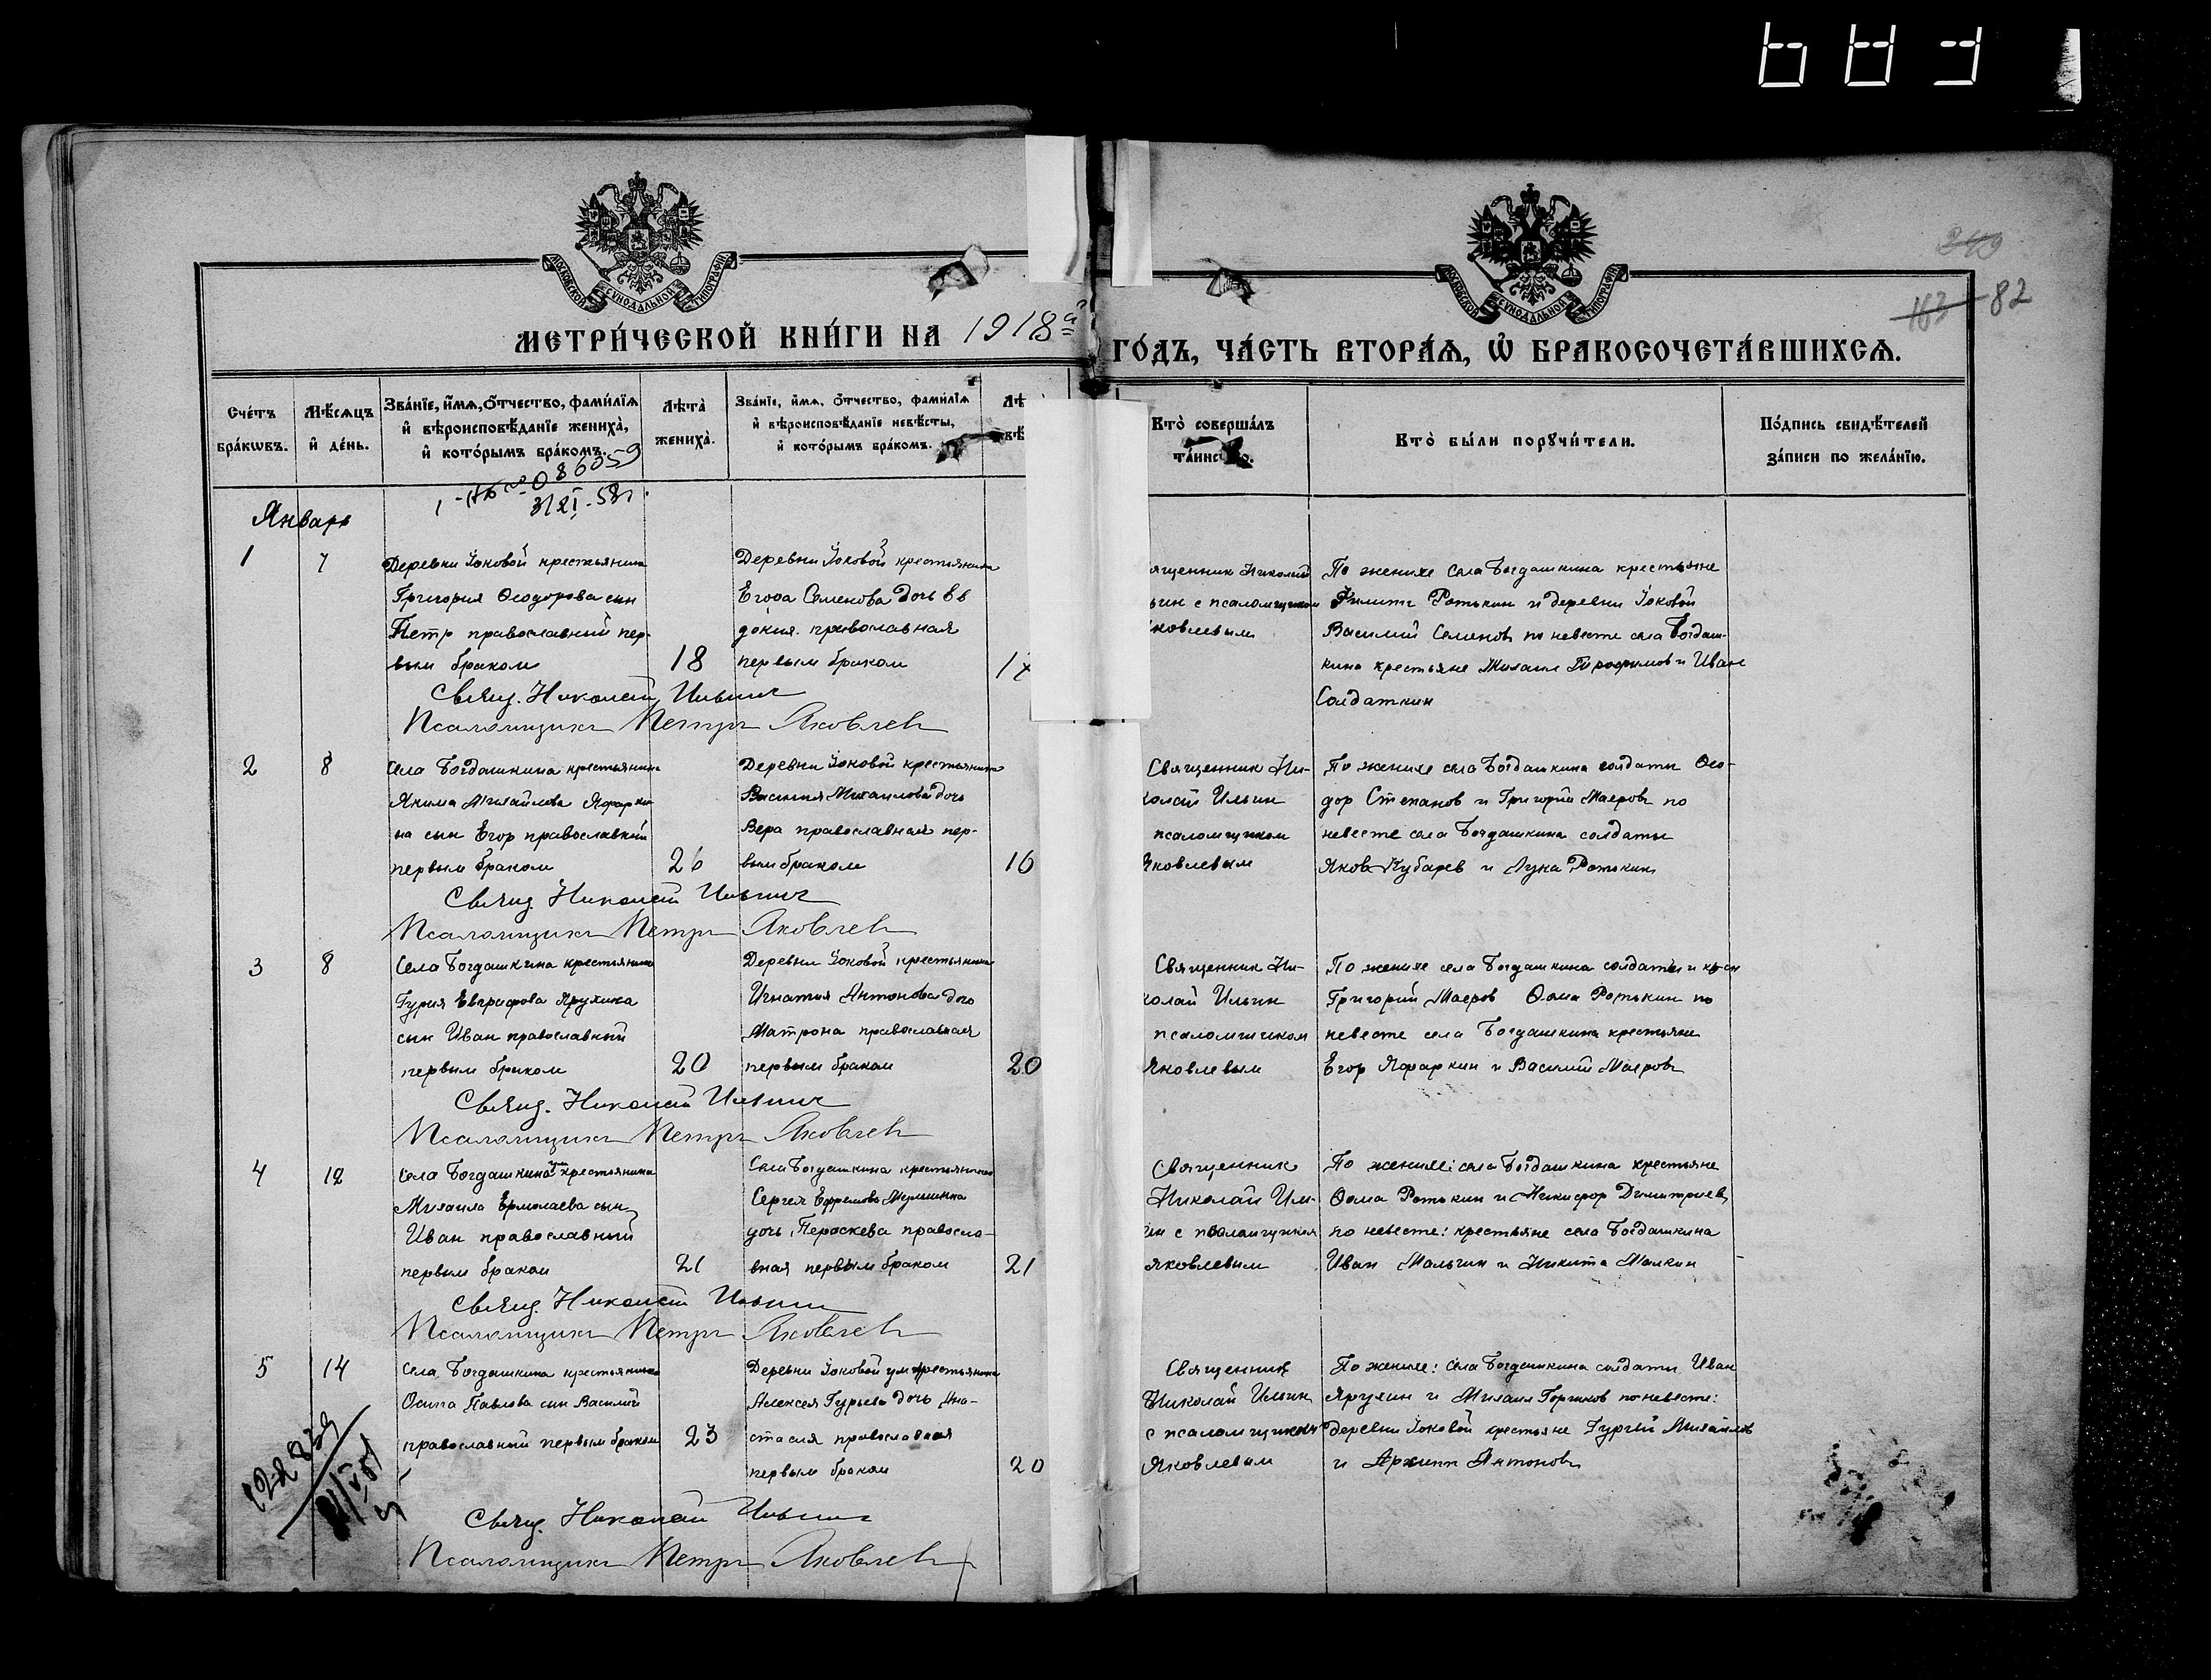 МОСКОВСКОЙ СѴНОДАЛЬНОЙ ТИПОГРАФІИ
МОСКОВСКОЙ СѴНОДАЛЬНОЙ ТИПОГРАФІИ
82
МЕТРИ́ЧЕСКОЙ КНИ́ГИ НА 1918й ГО́ДЪ, ЧА́СТЬ ВТОРА́Ѧ, Ѽ БРАКОСОЧЕТА́ВШИХСѦ.
Сче́тъ бра́кѡвъ.
Мѣ́сѧцъ и҆ де́нь.
Зва́нїе, и҆́мѧ, ѻ҆́тчество, фами́лїѧ
и҆ вѣроисповѣ́данїе жениха̀,
и҆ кото́рымъ бра́комъ.
Лѣта̀ жениха̀.
Зва́нїе, и҆́мѧ, ѻ҆́тчество, фами́лїѧ
и҆ вѣроисповѣ́данїе невѣ́сты,
и҆ кото́рымъ бра́комъ.
Кто̀ соверша́лъ
Кто̀ бы́ли порꙋчи́тели.
По́дпись свидѣ́телей
за́писи по жела́нїю.
086059
Январь
1
7
Деревни Юковой крестьянина
Григория Феодорова сын
Петр православный пер-
вым браком
18
Деревни Юковой крестьянина
Егора Семенова дочь Ев
докия православная
первым браком
17
ященник Николай
ьин с псаломщиком
Яковлевым
По женихе села Богдашкина крестьяне
Филипп Ротькин и деревни Юковой
Василий Семенов, по невесте села Богдаш-
кина крестьяне Михаил Трофимов и Иван
Солдаткин
Свящ. Николай Ильин
Псаломщикъ Петръ Яковлев
2
8
Села Богдашкина крестьянина
Якима Михайлова Яфарки
на сын Егор православный
первым браком
26
Деревни Юковой крестьянина
Василия Михайлова дочь
Вера православная пер-
вым браком
16
Священник Ни-
колай Ильин
псаломщиком
Яковлевым
По женихе села Богдашкина солдаты Фео-
дор Степанов и Григорий Маеров по
невесте села Богдашкина солдаты
Яков Кубарев и Лука Ротькин
Свящ. Николай Ильин
Псаломщикъ Петръ Яковлев
3
8
Села Богдашкина крестьянина
Гурия Евграфова Ярухина
сын Иван православный
первым браком
20
Деревни Юковой крестьянина
Игнатия Антонова дочь
Матрона православная
первым браком
20
Священник Ни-
колай Ильин
псаломщиком
Яковлевым
По женихе села Богдашкина солдаты и
Григорий Маеров Фома Ротькин по
невесте села Богдашкина крестьяне
Егор Яфаркин и Василий Маеров
Свящ. Николай Ильин
Псаломщикъ Петръ Яковлев
4
12
Села Богдашкина крестьянина
Михаила Ермолаева сын
Иван православный
первым браком
21
Села Богдашкина крестьянина
Сергея Ефремова
дочь Пероскева правосла-
вная первым браком
21
Священник
Николай Иль-
ин с псаломщиком
Яковлевым
По женихе: села Богдашкина крестьяне
Фома Ротькин и Никифор Димитриев,
по невесте: крестьяне села Богдашкина
Иван Мальгин и Никита Малкин
Свящ. Николай Ильин
Псаломщикъ Петръ Яковлев
5
14
Села Богдашкина крестьянина
Осипа Павлова сын Василий
православный первым браком
23
Деревни Юковой ум. крестьянина
Алексея Гурьева дочь Ана-
стасия православная
первым браком
20
Священник
Николай Ильин
с псаломщиком
Яковлевым
По женихе: села Богдашкина солдаты Иван
Ярухин и Михаил Горшков по невесте:
деревни Юковой крестьяне Гурий Михайлов
и Архипп Антонов
Свящ. Николай Ильин
Псаломщикъ Петръ Яковлев